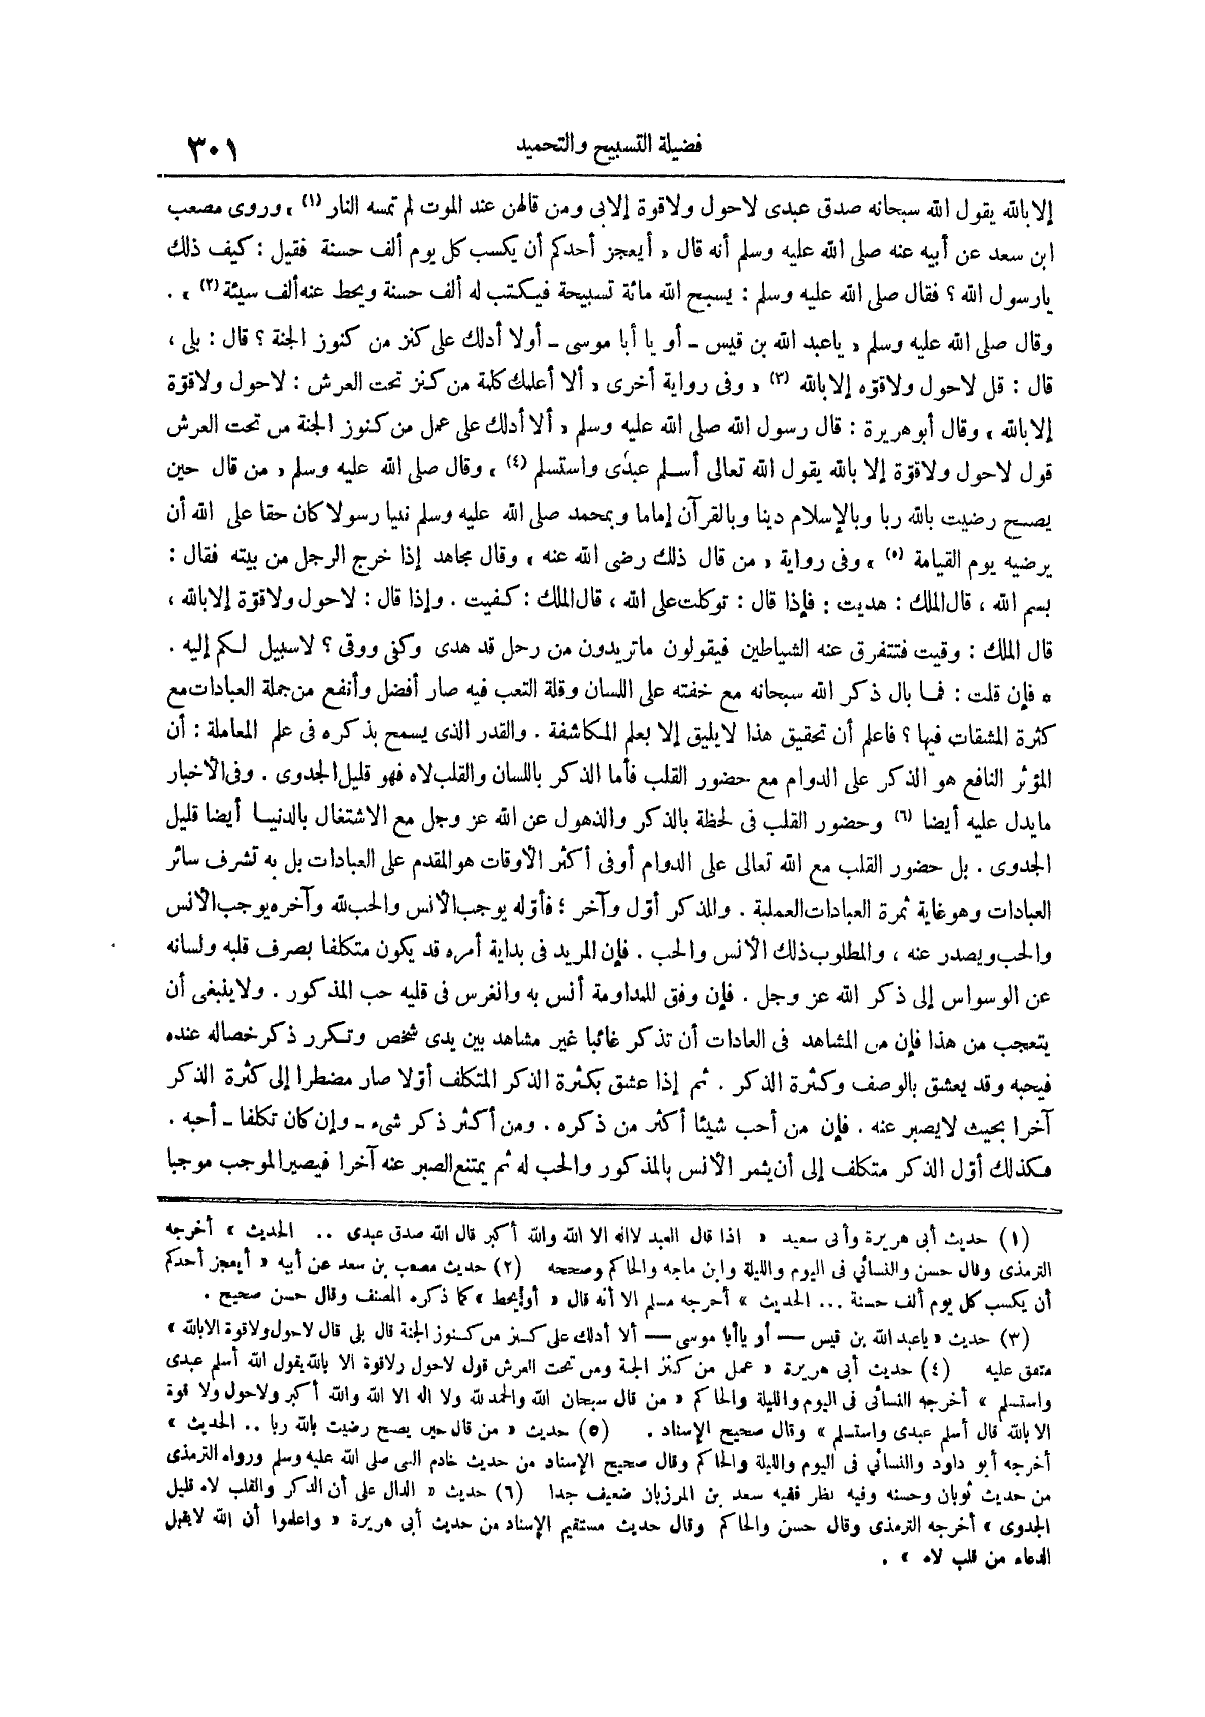 فضيلة التسبيح والتحميد ٣٠١
إلا بالله يقول الله سبحانه صدق عبدى لاحول ولاقوة إلابى ومن قالهن عند الموت لم تمسه النار (١) » وروى مصعب
ابن سعد عن أبيه عنه صلى الله عليه وسلم أنه قال « أيعجز أحدكم أن يكسب كل يوم ألف حسنة فقيل : كيف ذلك
يارسول الله ؟ فقال صلى الله عليه وسلم : يسبح الله مائة تسبيحة فيكتب له ألف حسنة ويحط عنه ألف سيئة (٢) » .
وقال صلى الله عليه وسلم « ياعبد الله بن قيس ـ أو يا أبا موسى ـ أولا أدلك على كنز من كنوز الجنة ؟ قال : بلى ،
قال : قل لاحول ولاقوه إلابالله (٣) » وفى رواية أخرى « ألا أعلمك كلمة من كنز تحت العرش : لاحول ولاقوّة
إلابالله » وقال أبوهريرة : قال رسول الله صلى الله عليه وسلم « ألا أدلك على عمل من كنوز الجنة من تحت العرش
قول لاحول ولاقوّة إلا بالله يقول الله تعالى أسلم عبدى واستسلم (٤) » وقال صلى الله عليه وسلم « من قال حين
يصبح رضيت بالله ربا وبالإسلام دينا وبالقرآن إماما وبمحمد صلى الله عليه وسلم نبيا رسولا كان حقا على الله أن
يرضيه يوم القيامة (٥) » وفى رواية « من قال ذلك رضى الله عنه » وقال مجاهد إذا خرج الرجل من بيته فقال :
بسم الله ، قال الملك : هديت : فإذا قال : توكلت على الله ، قال الملك : كفيت . وإذا قال : لاحول ولاقوّة إلابالله ،
قال الملك : وقيت فتتفرق عنه الشياطين فيقولون ماتريدون من رجل قد هدى وكفى ووقى ؟ لاسبيل لكم إليه .
* فإن قلت : فما بال ذكر الله سبحانه مع خفته على اللسان وقلة التعب فيه صار أفضل وأنفع من جملة العبادات مع
كثرة المشقات فيها ؟ فاعلم أن تحقيق هذا لايليق إلا بعلم المكاشفة . والقدر الذى يسمح بذكره فى علم المعاملة : أن
المؤثر النافع هو الذكر على الدوام مع حضور القلب فأما الذكر باللسان والقلب لاه فهو قليل الجدوى . وفى الأخبار
مايدل عليه أيضا (٦) وحضور القلب فى لحظة بالذكر والذهول عن الله عز وجل مع الاشتغال بالدنيا أيضا قليل
الجدوى . بل حضور القلب مع الله تعالى على الدوام أوفى أكثر الأوقات هو المقدم على العبادات بل به تشرف سائر
العبادات وهو غاية ثمرة العبادات العملية . وللذكر أوّل وآخر ؛ فأوّله يوجب الأنس والحب لله وآخره يوجب الأنس
والحب ويصدر عنه ، والمطلوب ذلك الأنس والحب . فإن المريد فى بداية أمره قد يكون متكلفا بصرف قلبه ولسانه
عن الوسواس إلى ذكر الله عز وجل . فإن وفق للمداومة أنس به وانغرس فى قلبه حب المذكور . ولاينبغى أن
يتعجب من هذا فإن من المشاهد فى العادات أن تذكر غائبا غير مشاهد بين يدى شخص وتكرر ذكر خصاله عنده
فيحبه وقد يعشق بالوصف وكثرة الذكر . ثم إذا عشق بكثرة الذكر المتكلف أوّلا صار مضطرا إلى كثرة الذكر
آخرا بحيث لايصبر عنه . فإن من أحب شيئا أكثر من ذكره . ومن أكثر ذكر شىء ـ وإن كان تكلفا ـ أحبه .
فكذلك أوّل الذكر متكلف إلى أن يثمر الأنس بالمذكور والحب له ثم يمتنع الصبر عنه آخرا فيصير الموجب موجبا
(١) حديث أبى هريرة وأبى سعيد « اذا قال العبد لااله الا الله والله أكبر قال الله صدق عبدى .. الحديث » أخرجه
الترمذى وقال حسن والنسائى فى اليوم والليلة وابن ماجه والحاكم وصححه (٢) حديث مصعب بن سعد عن أبيه « أيعجز أحدكم
أن يكسب كل يوم ألف حسنة ... الحديث » أخرجه مسلم الا أنه قال « أو يحط » كما ذكره المصنف وقال حسن صحيح .
(٣) حديث « ياعبد الله بن قيس — أو ياأبا موسى — ألا أدلك على كنز من كنوز الجنة قال بلى قال لاحول ولاقوة الابالله »
متفق عليه (٤) حديث أبى هريرة « عمل من كنز الجنة ومن تحت العرش قول لاحول ولاقوة الا بالله يقول الله أسلم عبدى
واستسلم » أخرجه النسائى فى اليوم والليلة والحاكم « من قال سبحان الله والحمد لله ولا اله الا الله والله أكبر ولاحول ولا قوة
الا بالله قال أسلم عبدى واستسلم » وقال صحيح الإسناد . (٥) حديث « من قال حين يصبح رضيت بالله ربا .. الحديث »
أخرجه أبو داود والنسائى فى اليوم والليلة والحاكم وقال صحيح الإسناد من حديث خادم النبى صلى الله عليه وسلم ورواه الترمذى
من حديث ثوبان وحسنه وفيه نظر ففيه سعد بن المرزبان ضعيف جدا (٦) حديث « الدال على أن الذكر والقلب لاه قليل
الجدوى » أخرجه الترمذى وقال حسن والحاكم وقال حديث مستقيم الإسناد من حديث أبى هريرة « واعلموا أن الله لايقبل
الدعاء من قلب لاه » .